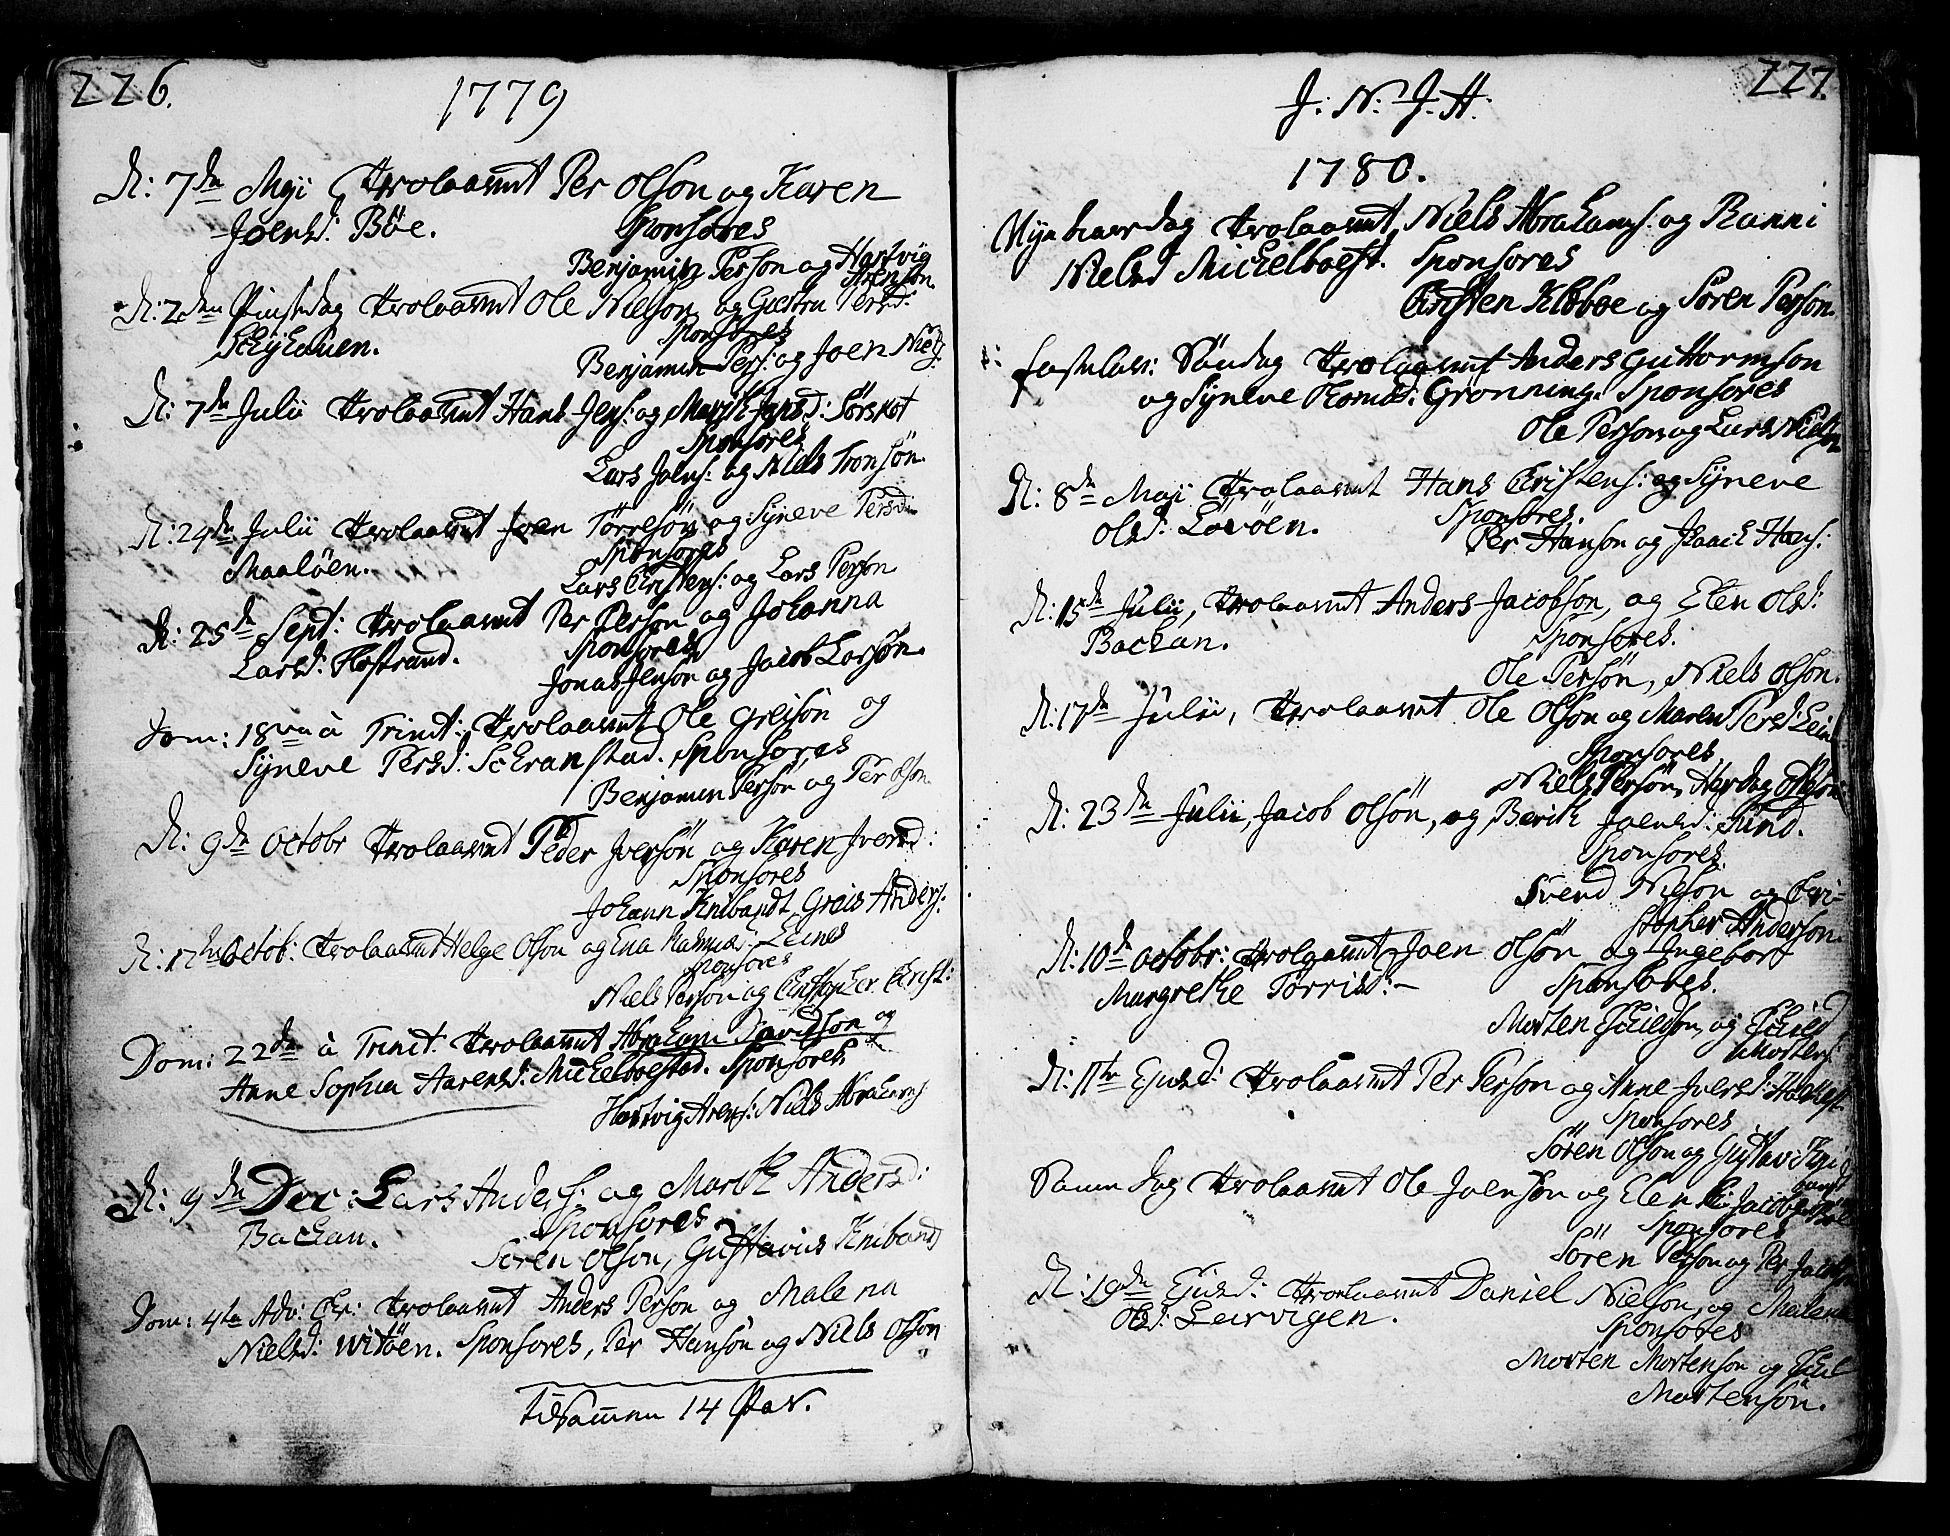 226.
1779
D: 7de Maji Trolaamt Per Olson og Karen
Joensd: Böe. Sponsores
Benjamin Person og Hartvig
Arenson.
D: 2den Pinstdag Trolaamt Ole Nielson og Giertru Persd:
Skiyloeien. Sponsores
Benjamin Pers: og Joen Niels:
D: 7de Julii Trolaamt Hans Jens: og Marith Jansd: Sörskot
Sponsores
Lars Joens: og Niels Tronsön.
D: 24de Julii Trolaamt Joen Törresön og Syneve Persd:
Maalöen. Sponsores
Lars Christens: og Lars Person
D: 25de Sept: Trolaamt Per Person og Johanna
Larsd: Hofstrand. Sponsores
Jonas Jenson og Jacob Larsön.
Dom: 18va à Trinit: Trolaamt Ole Greisön og
Syneve Persd: Schranstad. Sponsores
Benjamin Persön og Per Olson
D: 9de Octobr Trolaamt Peder Jversön og Karen Jversd:
Sponsores
Johann Knibandt, Greis Anders:
D: 17de Octob: Trolaamt Helge Olson og Ena Rasmusd: Leines
Sponsores
Niels Person og Christopher Christ:
Dom: 22da à Trinit. Trolaamt Abraham Davidson og
Anne Sophia Aarensd: Mickelboestad. Sponsores
Hartvig Arens: Niels Abrahams
D: 9de Dec: Lars Anders: og Marith Andersd:
Bachan. Sponsores
Sören Olson, Gustavus Kniband
Dom: 4ta Adv: Chr: Trolaamt Anders Person og Malena
Nielsd: Witöen. Sponsores, Per Hansön og Niels Olson
tilsammen 14 Par.
227.
J: N: J: H:
1780.
Nyaarsdag Trolaamt Niels Abrahams: og Ranni
Nielsd Mickelboest. Sponsores
Christen Kloboe og Sören Person.
fastelav: Söndag Trolaamt Anders Guttormson
og Syneve Thomasd: Grönning. Sponsores
Ole Person og Lars Nielson
D: 8de Maji Trolaamt Hans Christens: og Syneve
Olsd: Lövöen. Sponsores.
Per Hanson og Isaach Hans:
D: 15de Julii, Trolaamt Anders Jacobson, og Elen Olsd:
Bachan. Sponsores.
Ole Persön, Niels Olson.
D: 17de Julii, Trolaamt Ole Olson og Maren Persd:
Sponsores
Niels Persön,
D: 23de Julii, Jacob Olsön, og Berith Joensd: Sund.
Sponsores.
Svend Nielson og Chri-
stopher Anderson.
D: 10de Octobr: Trolaamt Joen Olsön og Ingebor
Margrethe Torrisd: - Sponsores.
Morten Eskildson, og Eskild
Mortens:
D: 11te Ejusd: Trolaamt Per Person og Anne Jversd:
Sponsores
Sören Olson og Gustav Kni
bandt
Samm Dag Trolaamt Ole Joenson og Elen
Sponsores
Sören Person og Per Jacobs
D: 19de Ejusd: Trolaamt Daniel Nielson, og Malena
Olsd: Leirvigen. Sponsores
Morten Mortenson og Eskil
Mortensön.